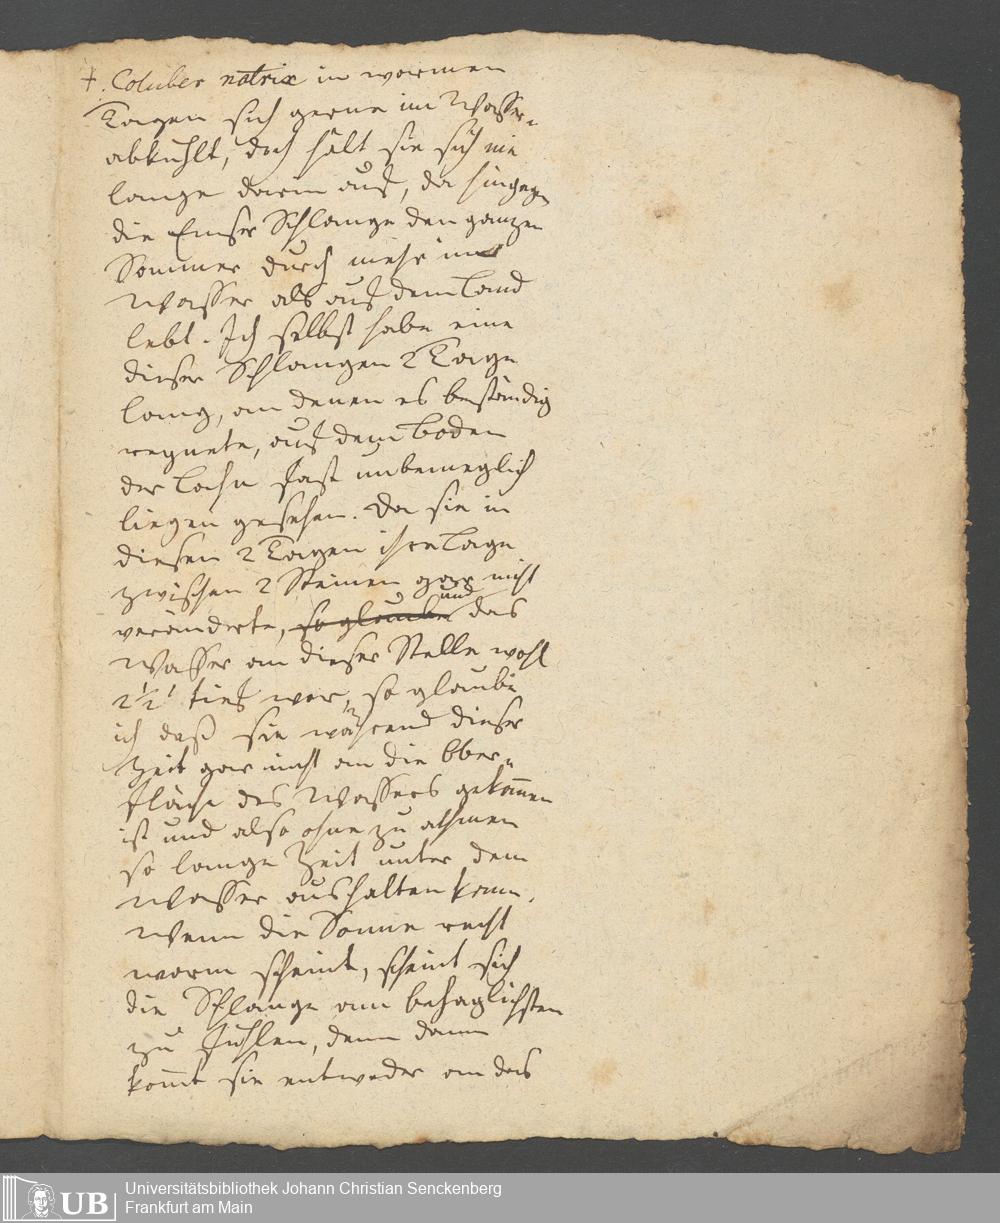 †. Coluber natrix in warmen
Tagen sich gerne im Wasser
abkühlt, doch hält sie sich nie
lange darin auf, da hingegen
die Emser Schlange den ganzen
Sommer durch mehr im
Wasser als auf dem Land
lebt. Ich selbst habe eine
dieser Schlangen 2 Tage
lang, an denen es beständig
regnete, auf dem Boden
der Lahn fast unbeweglich
liegen gesehen. Da sie in
diesen 2 Tagen ihre Lage
zwischen 2 Steinen gar nicht
veränderte, so glaube und das
Wasser an dieser Stelle wohl
2 1/2' tief war, so glaube
ich daß sie während dieser
Zeit gar nicht an die Ober-
fläche des Wassers gekom̄en
ist und also ohne zu athmen
so lange Zeit unter dem
Wasser aushalten kann.
Wenn die Sonne recht
warm scheint, scheint sich
die Schlange am behaglichsten
zu fühlen, denn dann
kom̄t sie entweder an das
UB
Universitätsbibliothek Johann Christian Senckenberg
Frankfurt am Main